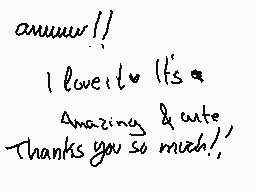 awwww!!
I love it♥ It's
Amazing & cute
Thanks you so much!!